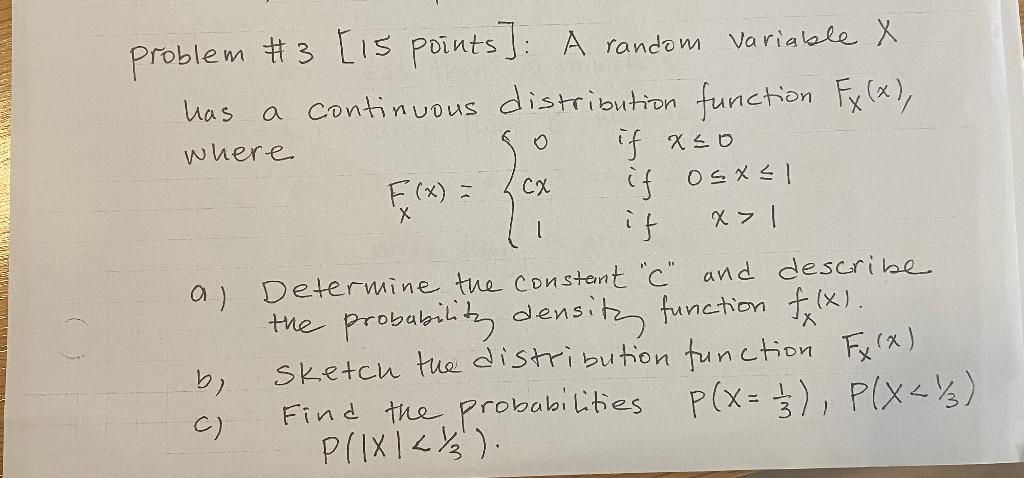 Problem #3 [15 points]: A random variable X
has a continuous distribution function F_X(x),
where
F_X(x) = { 0 if x ≤ 0
cx if 0 ≤ x ≤ 1
1 if x > 1
a) Determine the constant "c" and describe
the probability density function f_X(x).
b) Sketch the distribution function F_X(x)
c) Find the probabilities P(X = 1/3), P(X < 1/3)
P(|X| < 1/3).